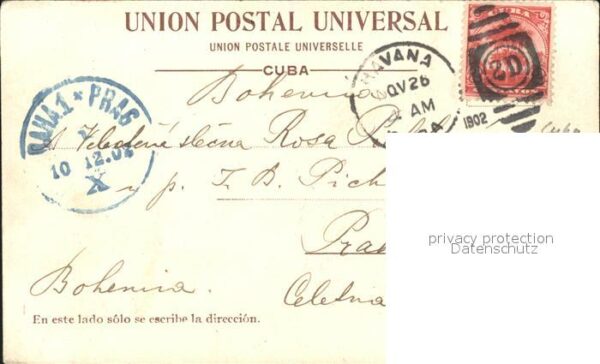 UNION POSTAL UNIVERSAL
UNION POSTALE UNIVERSELLE
CUBA
HAVANA
NOV 26
AM
1902
CUBA
2D
PRAHA 1 * PRAG
10 12.02
X
Bohemia
Velectěné slečna Rosa
Cuba
u p. F. B. Pich
Pra
Bohemia.
Celetná
En este lado sólo se escribe la dirección.
privacy protection
Datenschutz